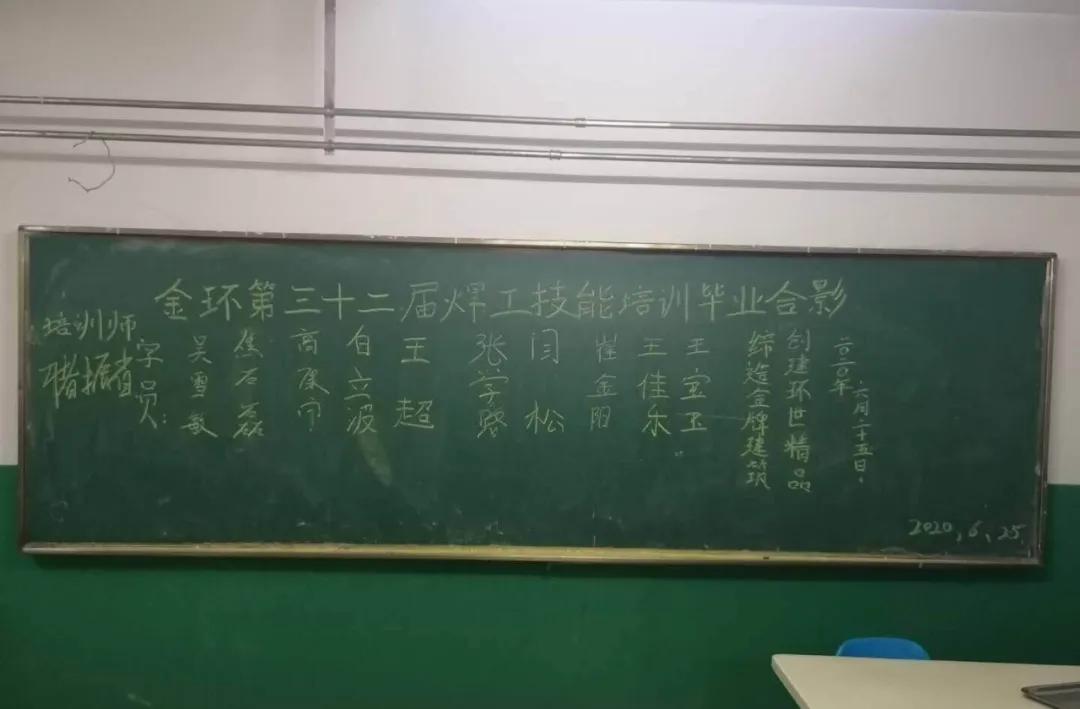 金环第三十二届焊工技能培训毕业合影
培训师
振省
学员：
吴雪敏
焦石磊
高守
白立波
王超
张学
闫松
崔金阳
王佳乐
王宝玉
缔造金牌建筑
创建环世精品
二〇二〇年
六月二十五日。
2020，6、25